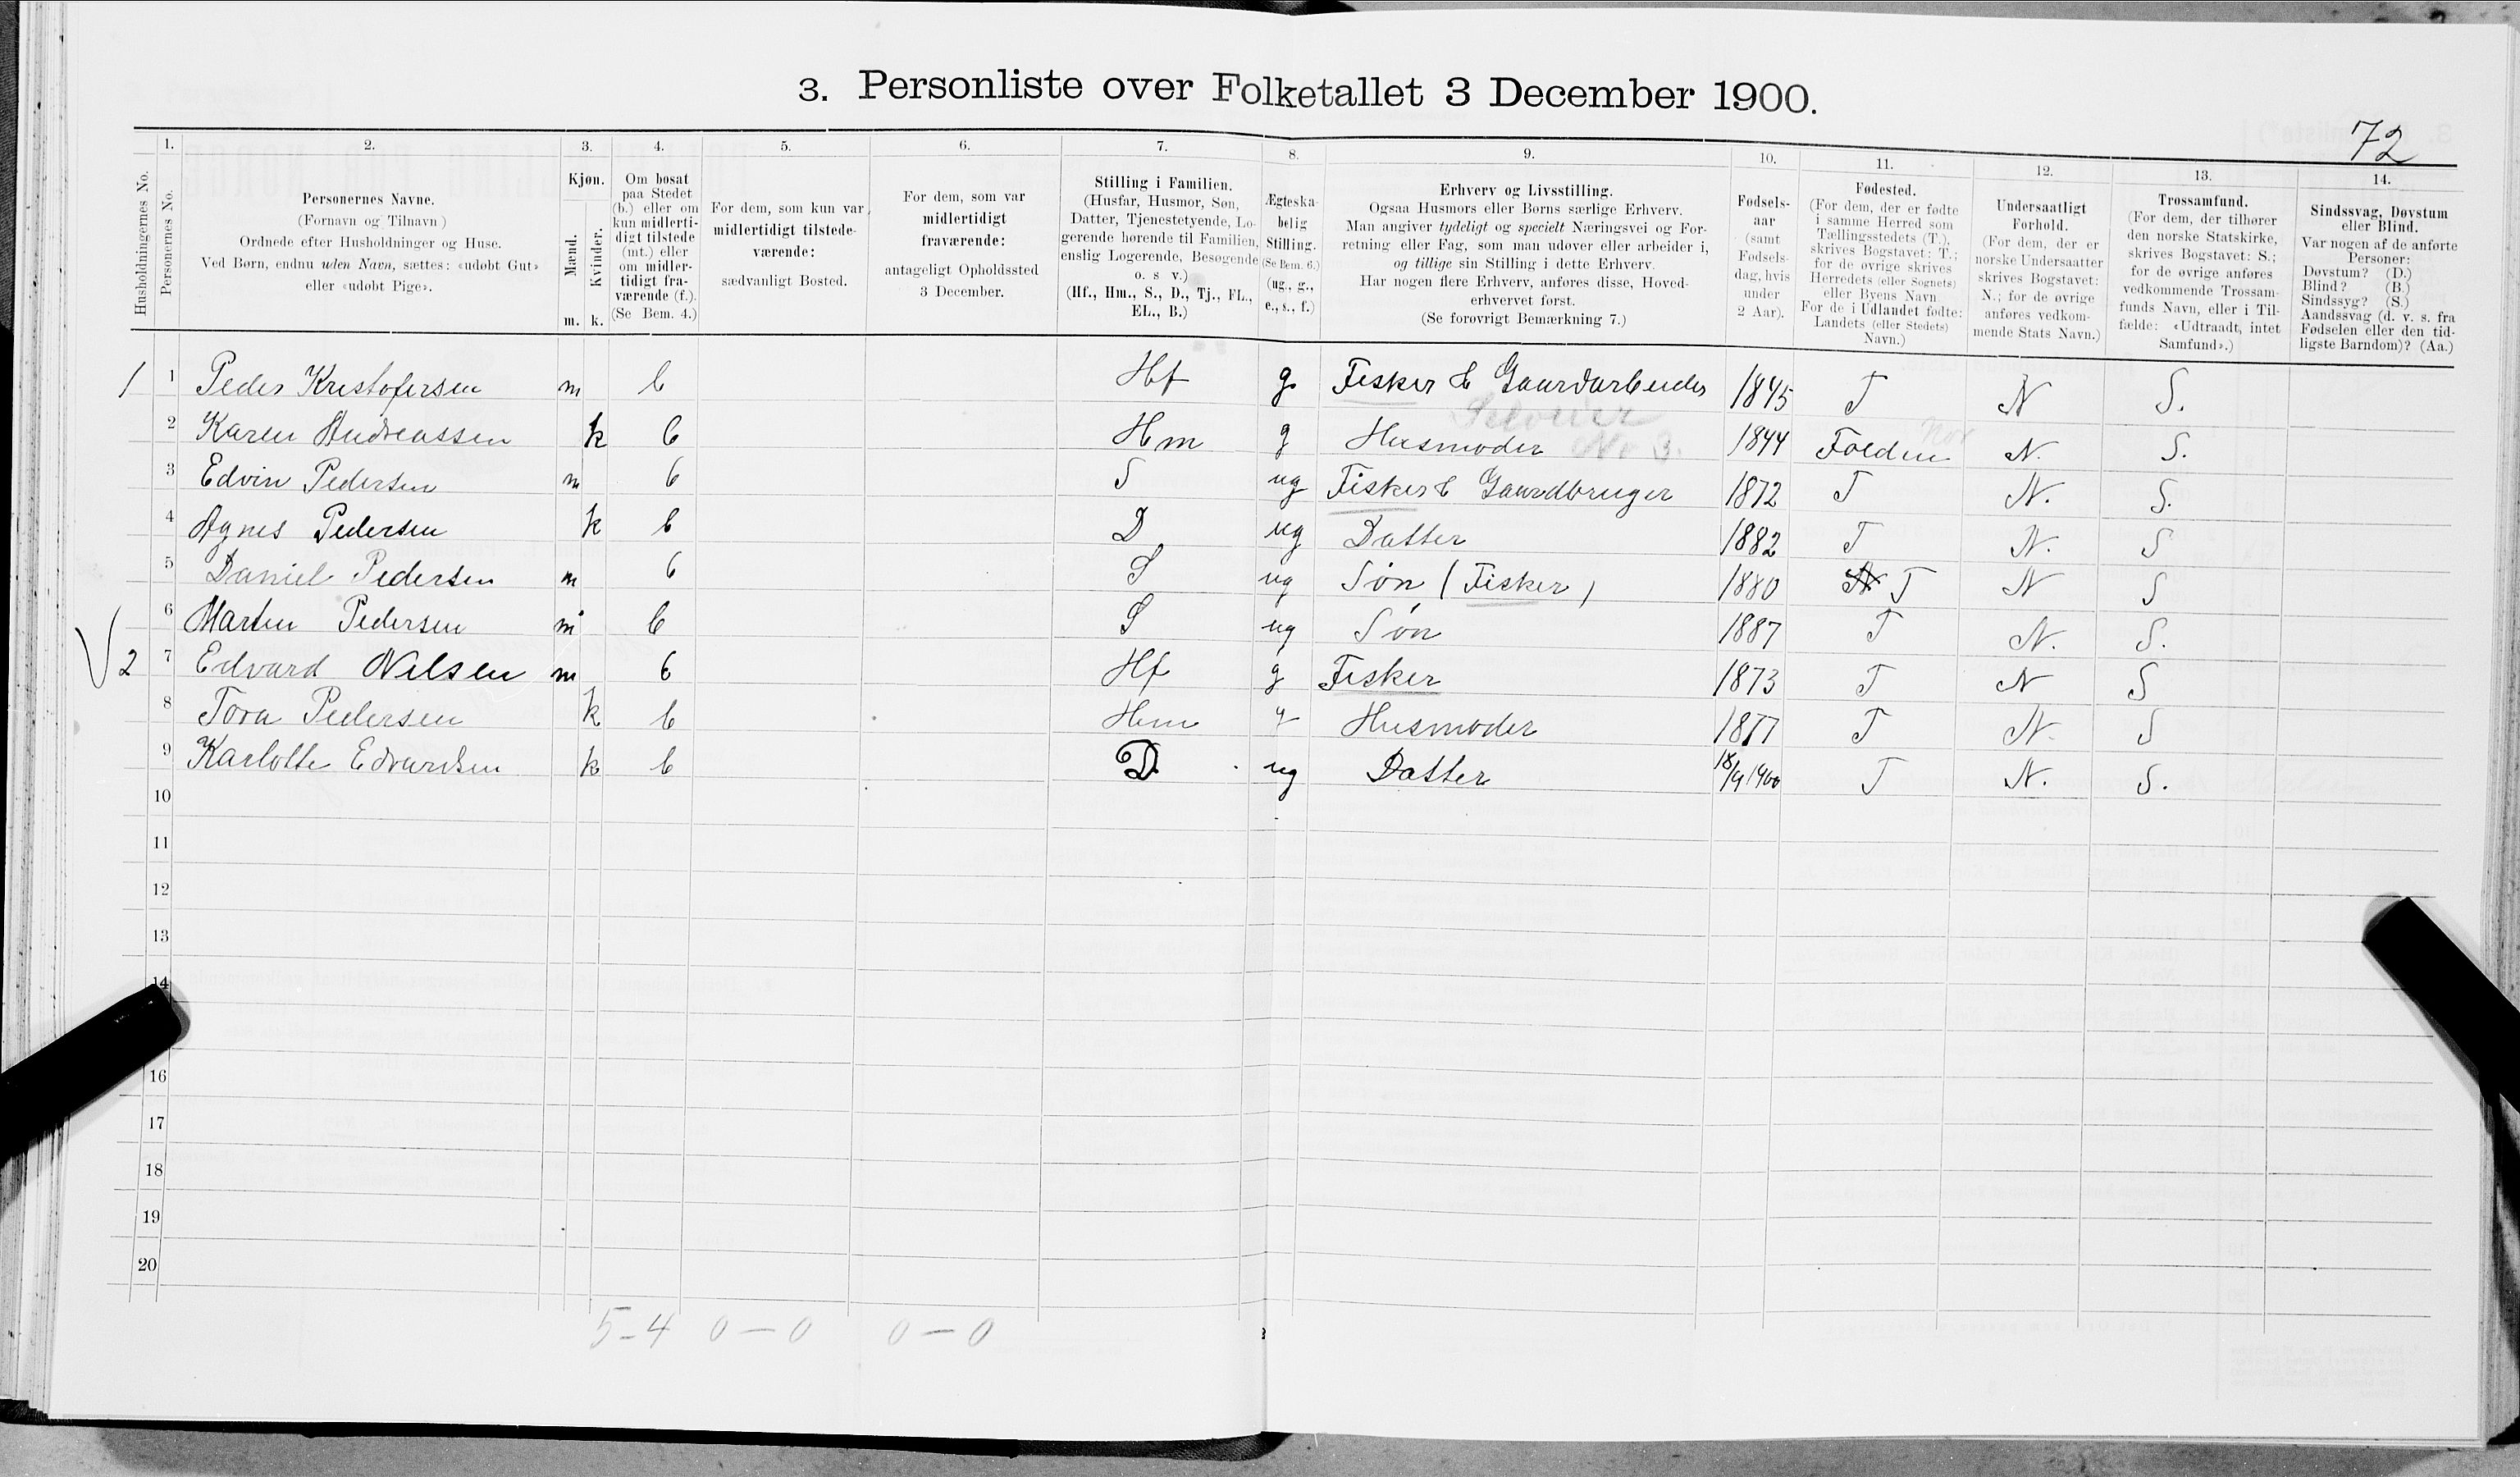 3. Personliste over Folketallet 3 December 1900.
72
1. 2. 3. 4. 5. 6. 7. 8. 9. 10. 11. 12. 13. 14.
Husholdningernes No.
Personernes No.
Personernes Navne.
(Fornavn og Tilnavn)
Ordnede efter Husholdninger og Huse.
Ved Børn, endnu uden Navn, sættes: «udøbt Gut»
eller «udøbt Pige».
Kjøn.
Mænd.
Kvinder.
m. k.
Om bosat
paa Stedet
(b.) eller om
kun midlerti-
digt tilstede
(mt.) eller
om midler-
tidigt fra-
værende (f.).
(Se Bem. 4.)
For dem, som kun var
midlertidigt tilstede-
værende:
sædvanligt Bosted.
For dem, som var
midlertidigt
fraværende:
antageligt Opholdssted
3 December.
Stilling i Familien.
(Husfar, Husmor, Søn,
Datter, Tjenestetyende, Lo-
gerende hørende til Familien,
enslig Logerende, Besøgende
o. s v.)
(Hf., Hm., S., D., Tj., FL.,
EL., B.)
Ægteska-
belig
Stilling.
(Se Bem. 6.)
(ug., g.,
e., s., f.)
Erhverv og Livsstilling.
Ogsaa Husmors eller Børns særlige Erhverv.
Man angiver tydeligt og specielt Næringsvei og For-
retning eller Fag, som man udøver eller arbeider i,
og tillige sin Stilling i dette Erhverv.
Har nogen flere Erhverv, anføres disse, Hoved-
erhvervet først.
(Se forøvrigt Bemærkning 7.)
Fødsels-
aar
(samt
Fødsels-
dag, hvis
under
2 Aar).
Fødested.
(For dem, der er fødte
i samme Herred som
Tællingsstedets (T.),
skrives Bogstavet: T.;
for de øvrige skrives
Herredets (eller Sognets)
eller Byens Navn.
For de i Udlandet fødte:
Landets (eller Stedets)
Navn.)
Undersaatligt
Forhold.
(For dem, der er
norske Undersaatter
skrives Bogstavet:
N.; for de øvrige
anføres vedkom-
mende Stats Navn.)
Trossamfund.
(For dem, der tilhører
den norske Statskirke,
skrives Bogstavet: S.;
for de øvrige anføres
vedkommende Trossam-
funds Navn, eller i Til-
fælde: «Udtraadt, intet
Samfund».)
Sindssvag, Døvstum
eller Blind.
Var nogen af de anførte
Personer:
Døvstum? (D.)
Blind? (B.)
Sindssyg? (S.)
Aandssvag (d. v. s. fra
Fødselen eller den tid-
ligste Barndom)? (Aa.)
1 1 Peder Kristofersen m b Hf g Fisker & Gaardarbeider 1845 T N S.
2 Karen Andreassen k b Hm g Husmoder No 3. 1844 Folden Nor N. S.
3 Edvin Pedersen m b S ug Fisker & Gaardbruger 1872 T N. S.
4 Agnes Pedersen k b D ug Datter 1882 T N. S
5 Daniel Pedersen m b S ug Søn (Fisker) 1880 T N S
6 Martin Pedersen m b S ug Søn 1887 T N. S.
2 7 Edvard Nilsen m b Hf g Fisker 1873 T N S
8 Tora Pedersen k b Hm g Husmoder 1877 T N. S
9 Karlotte Edvardsen k b D. ug Datter 18/9 1900 T N. S.
10
11
12
13
14
16
17
18
19
20
5-4 0-0 0-0